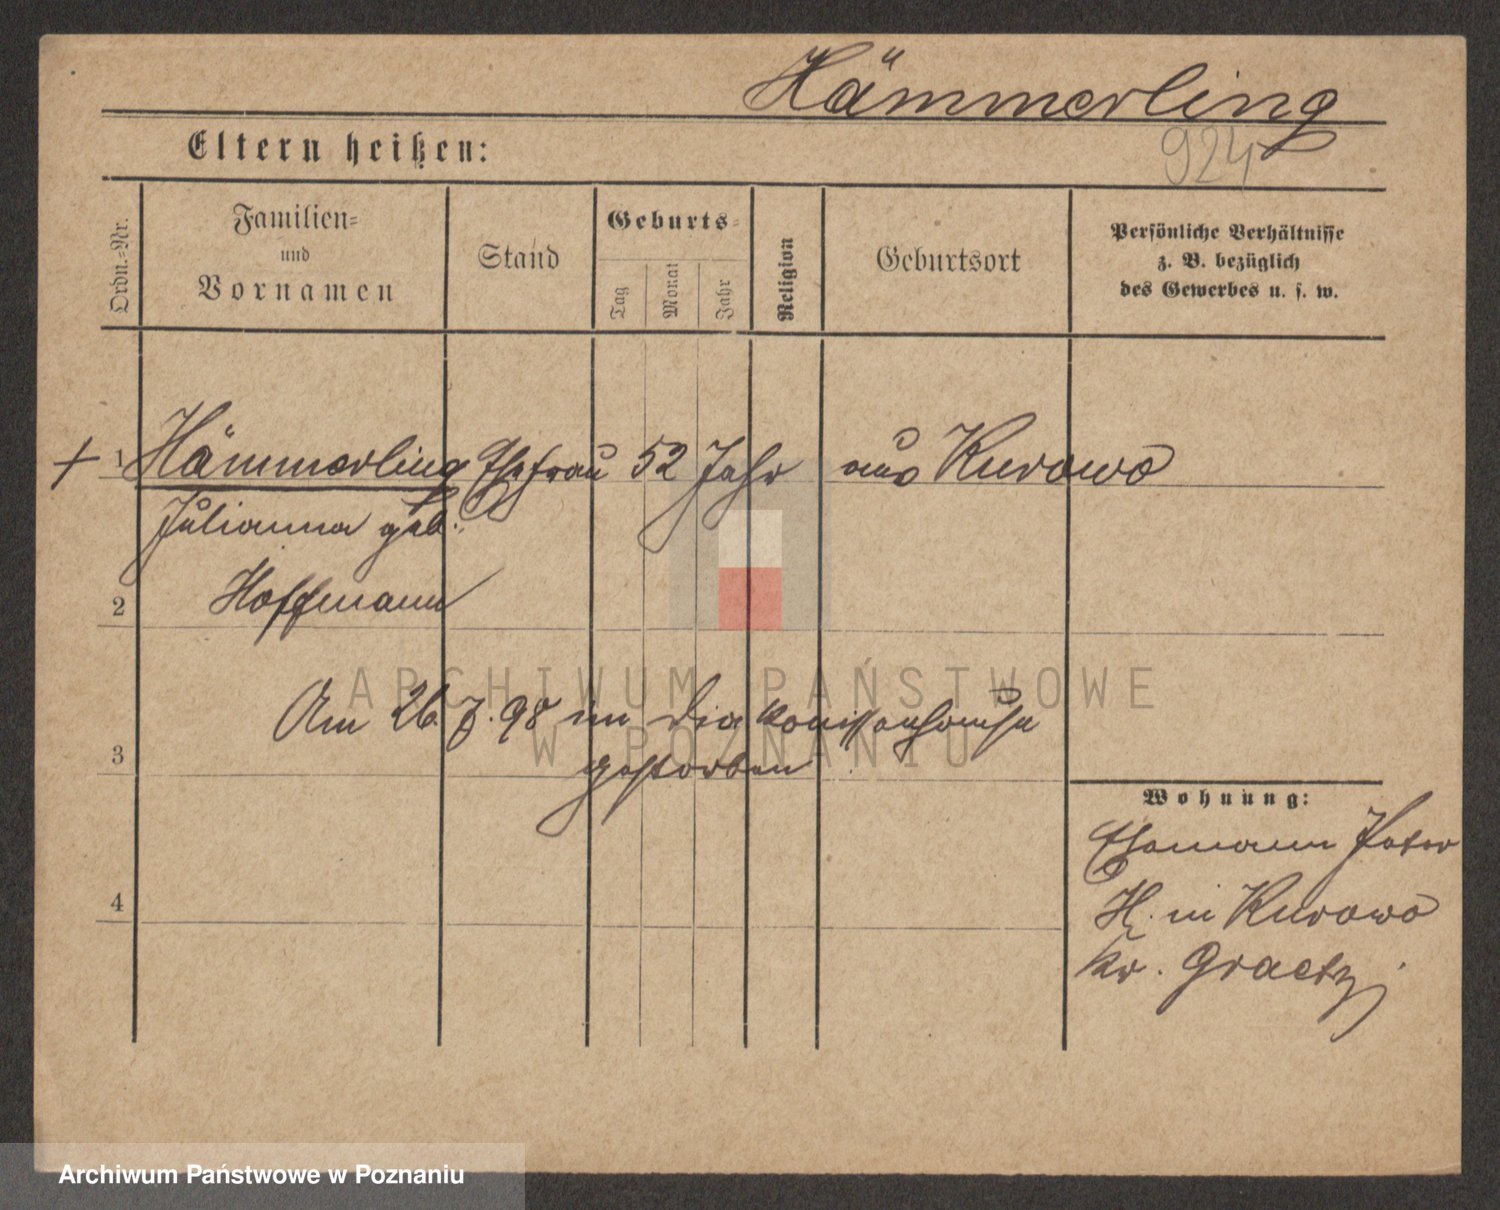 Hämmerling
924
Eltern heißen:
Ordn.=Nr.
Familien=
und
Vornamen
Stand
Geburts=
Tag
Monat
Jahr
Religion
Geburtsort
Persönliche Verhältnisse
z. B. bezüglich
des Gewerbes u. s. w.
+ 1 Hämmerling Ehefrau 52 Jahr aus Kurowo
Julianna geb.
2 Hoffmann
Am 26. 7. 98 im Diakonissenhause
3 gestorben
Wohnung:
Ehemann Peter
4 H. in Kurowo
Kr. Graetz
ARCHIWUM PAŃSTWOWE
W POZNANIU
Archiwum Państwowe w Poznaniu